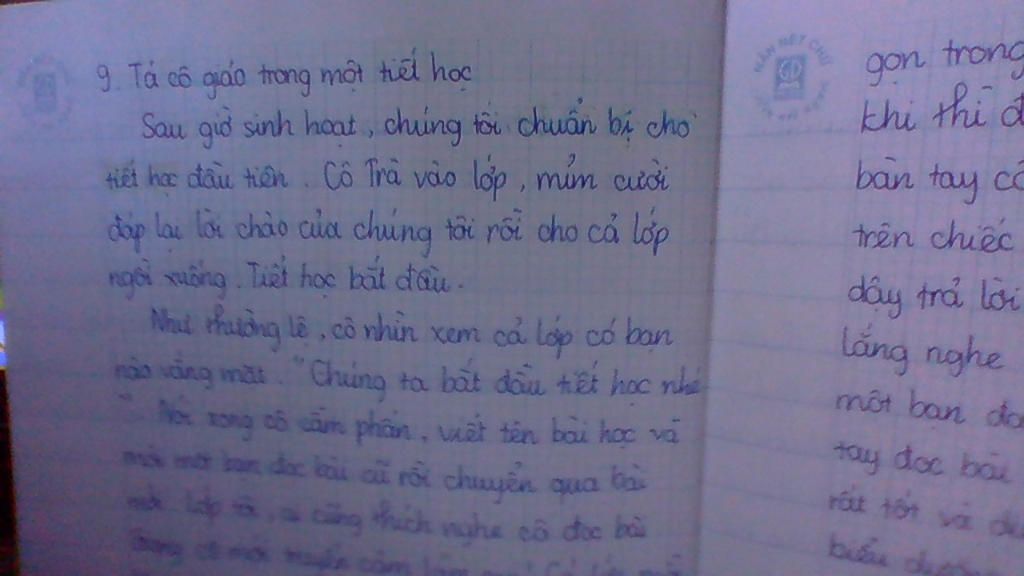 9. Tả cô giáo trong một tiết học
Sau giờ sinh hoạt, chúng tôi chuẩn bị cho
tiết học đầu tiên. Cô Trà vào lớp, mỉm cười
đáp lại lời chào của chúng tôi rồi cho cả lớp
ngồi xuống. Tiết học bắt đầu.
Như thường lệ, cô nhìn xem cả lớp có bạn
nào vắng mặt. "Chúng ta bắt đầu tiết học nhé
" Nói xong cô cầm phấn, viết tên bài học và
mời một bạn đọc bài cũ rồi chuyển qua bài
mới. Lớp tôi, ai cũng thích nghe cô đọc bài
gọn trong
khi thì
bàn tay
trên chiếc
dậy trả lời
lắng nghe
một bạn
tay đọc bài
rất tốt và
biểu